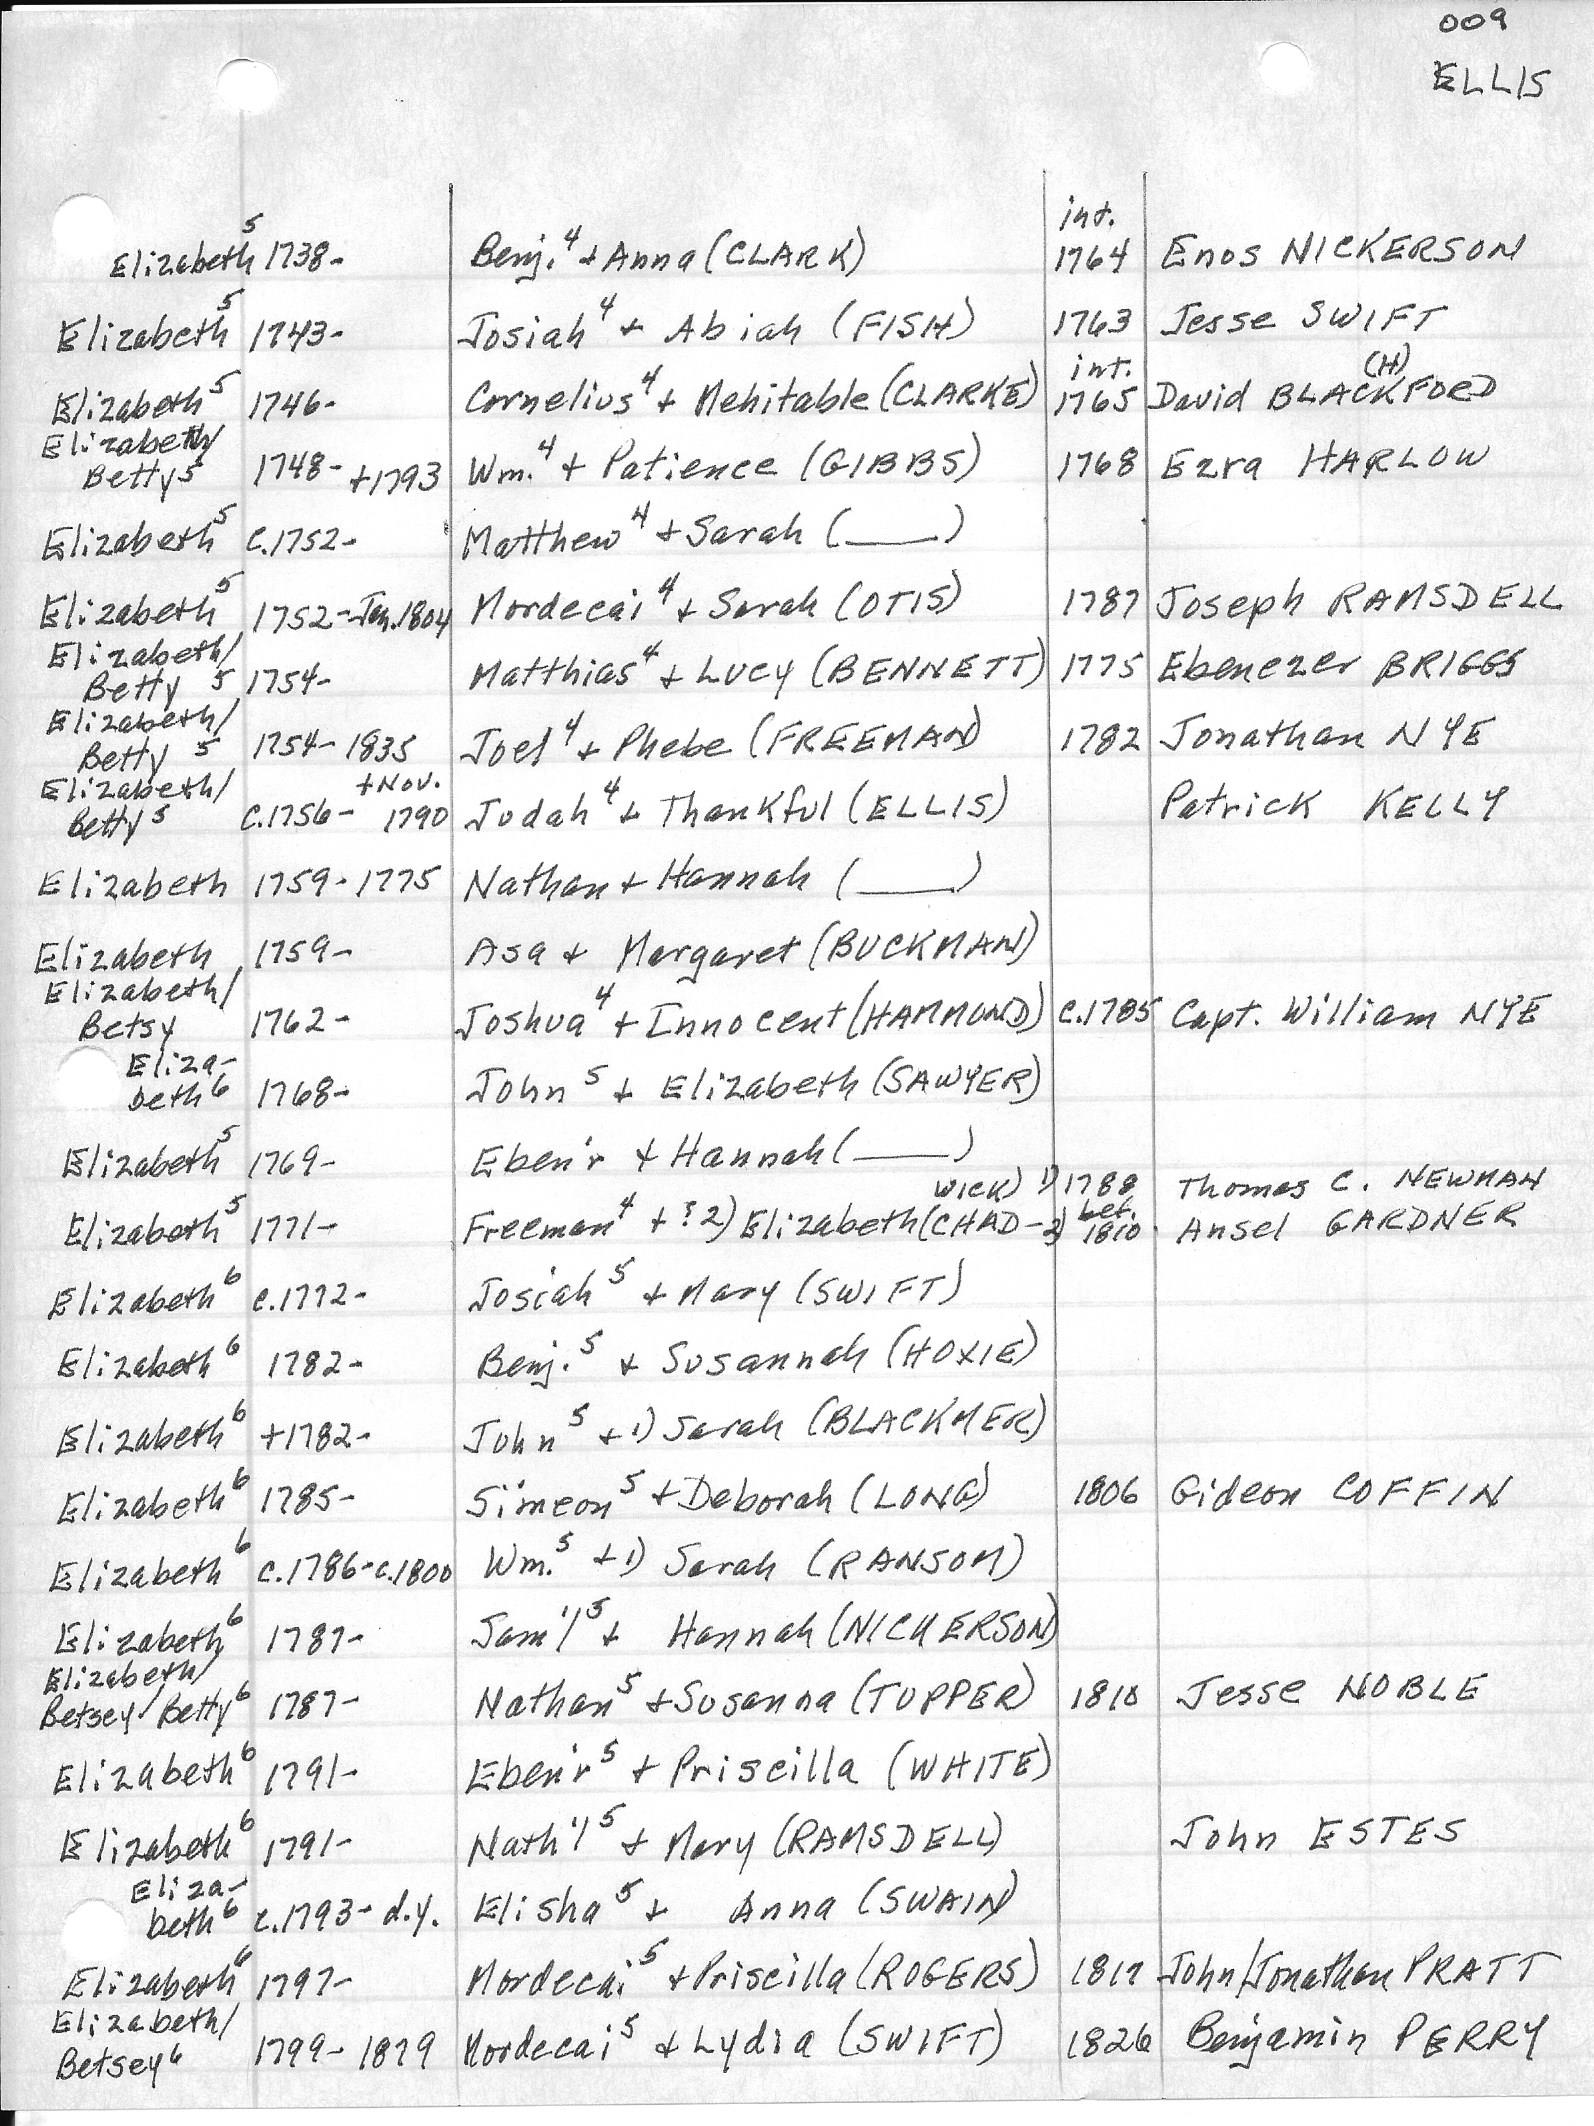 009
ELLIS
int.
Elizabeth⁵ 1738- Benj.⁴ + Anna (CLARK) 1764 Enos NICKERSON
Elizabeth⁵ 1743- Josiah⁴ + Abiah (FISH) 1763 Jesse SWIFT
int. (H)
Elizabeth⁵ 1746- Cornelius⁴ + Mehitable (CLARKE) 1765 David BLACKFORD
Elizabeth/
Betty⁵ 1748- +1793 Wm.⁴ + Patience (GIBBS) 1768 Ezra HARLOW
Elizabeth⁵ c.1752- Matthew⁴ + Sarah (____)
Elizabeth⁵ 1752-Jan.1804 Mordecai⁴ + Sarah (OTIS) 1787 Joseph RAMSDELL
Elizabeth/
Betty⁵ 1754- Matthias⁴ + Lucy (BENNETT) 1775 Ebenezer BRIGGS
Elizabeth/
Betty⁵ 1754- 1835 Joel⁴ + Phebe (FREEMAN) 1782 Jonathan NYE
Elizabeth/ +Nov.
Betty⁵ c.1756- 1790 Judah⁴ + Thankful (ELLIS) Patrick KELLY
Elizabeth 1759-1775 Nathan + Hannah (____)
Elizabeth 1759- Asa + Margaret (BUCKMAN)
Elizabeth/
Betsy 1762- Joshua⁴ + Innocent (HAMMOND) c.1785 Capt. William NYE
Eliza-
beth⁶ 1768- John⁵ + Elizabeth (SAWYER)
Elizabeth⁵ 1769- Eben'r + Hannah (____)
WICK) 1) 1788 Thomas C. NEWMAN
bef.
Elizabeth⁵ 1771- Freeman⁴ + ? 2) Elizabeth (CHAD- 2) 1810 Ansel GARDNER
Elizabeth⁶ c.1772- Josiah⁵ + Mary (SWIFT)
Elizabeth⁶ 1782- Benj.⁵ + Susannah (HOXIE)
Elizabeth⁶ +1782- John⁵ + 1) Sarah (BLACKMER)
Elizabeth⁶ 1785- Simeon⁵ + Deborah (LONG) 1806 Gideon COFFIN
Elizabeth⁶ c.1786-c.1800 Wm.⁵ + 1) Sarah (RANSOM)
Elizabeth⁶ 1787- Sam'l⁵ + Hannah (NICKERSON)
Elizabeth/
Betsey/Betty⁶ 1787- Nathan⁵ + Susanna (TUPPER) 1810 Jesse NOBLE
Elizabeth⁶ 1791- Eben'r⁵ + Priscilla (WHITE)
Elizabeth⁶ 1791- Nath'l⁵ + Mary (RAMSDELL) John ESTES
Eliza-
beth⁶ c.1793- d.y. Elisha⁵ + Anna (SWAIN)
Elizabeth⁶ 1797- Mordecai⁵ + Priscilla (ROGERS) 1817 John/Jonathan PRATT
Elizabeth/
Betsey⁶ 1799- 1879 Mordecai⁵ + Lydia (SWIFT) 1826 Benjamin PERRY